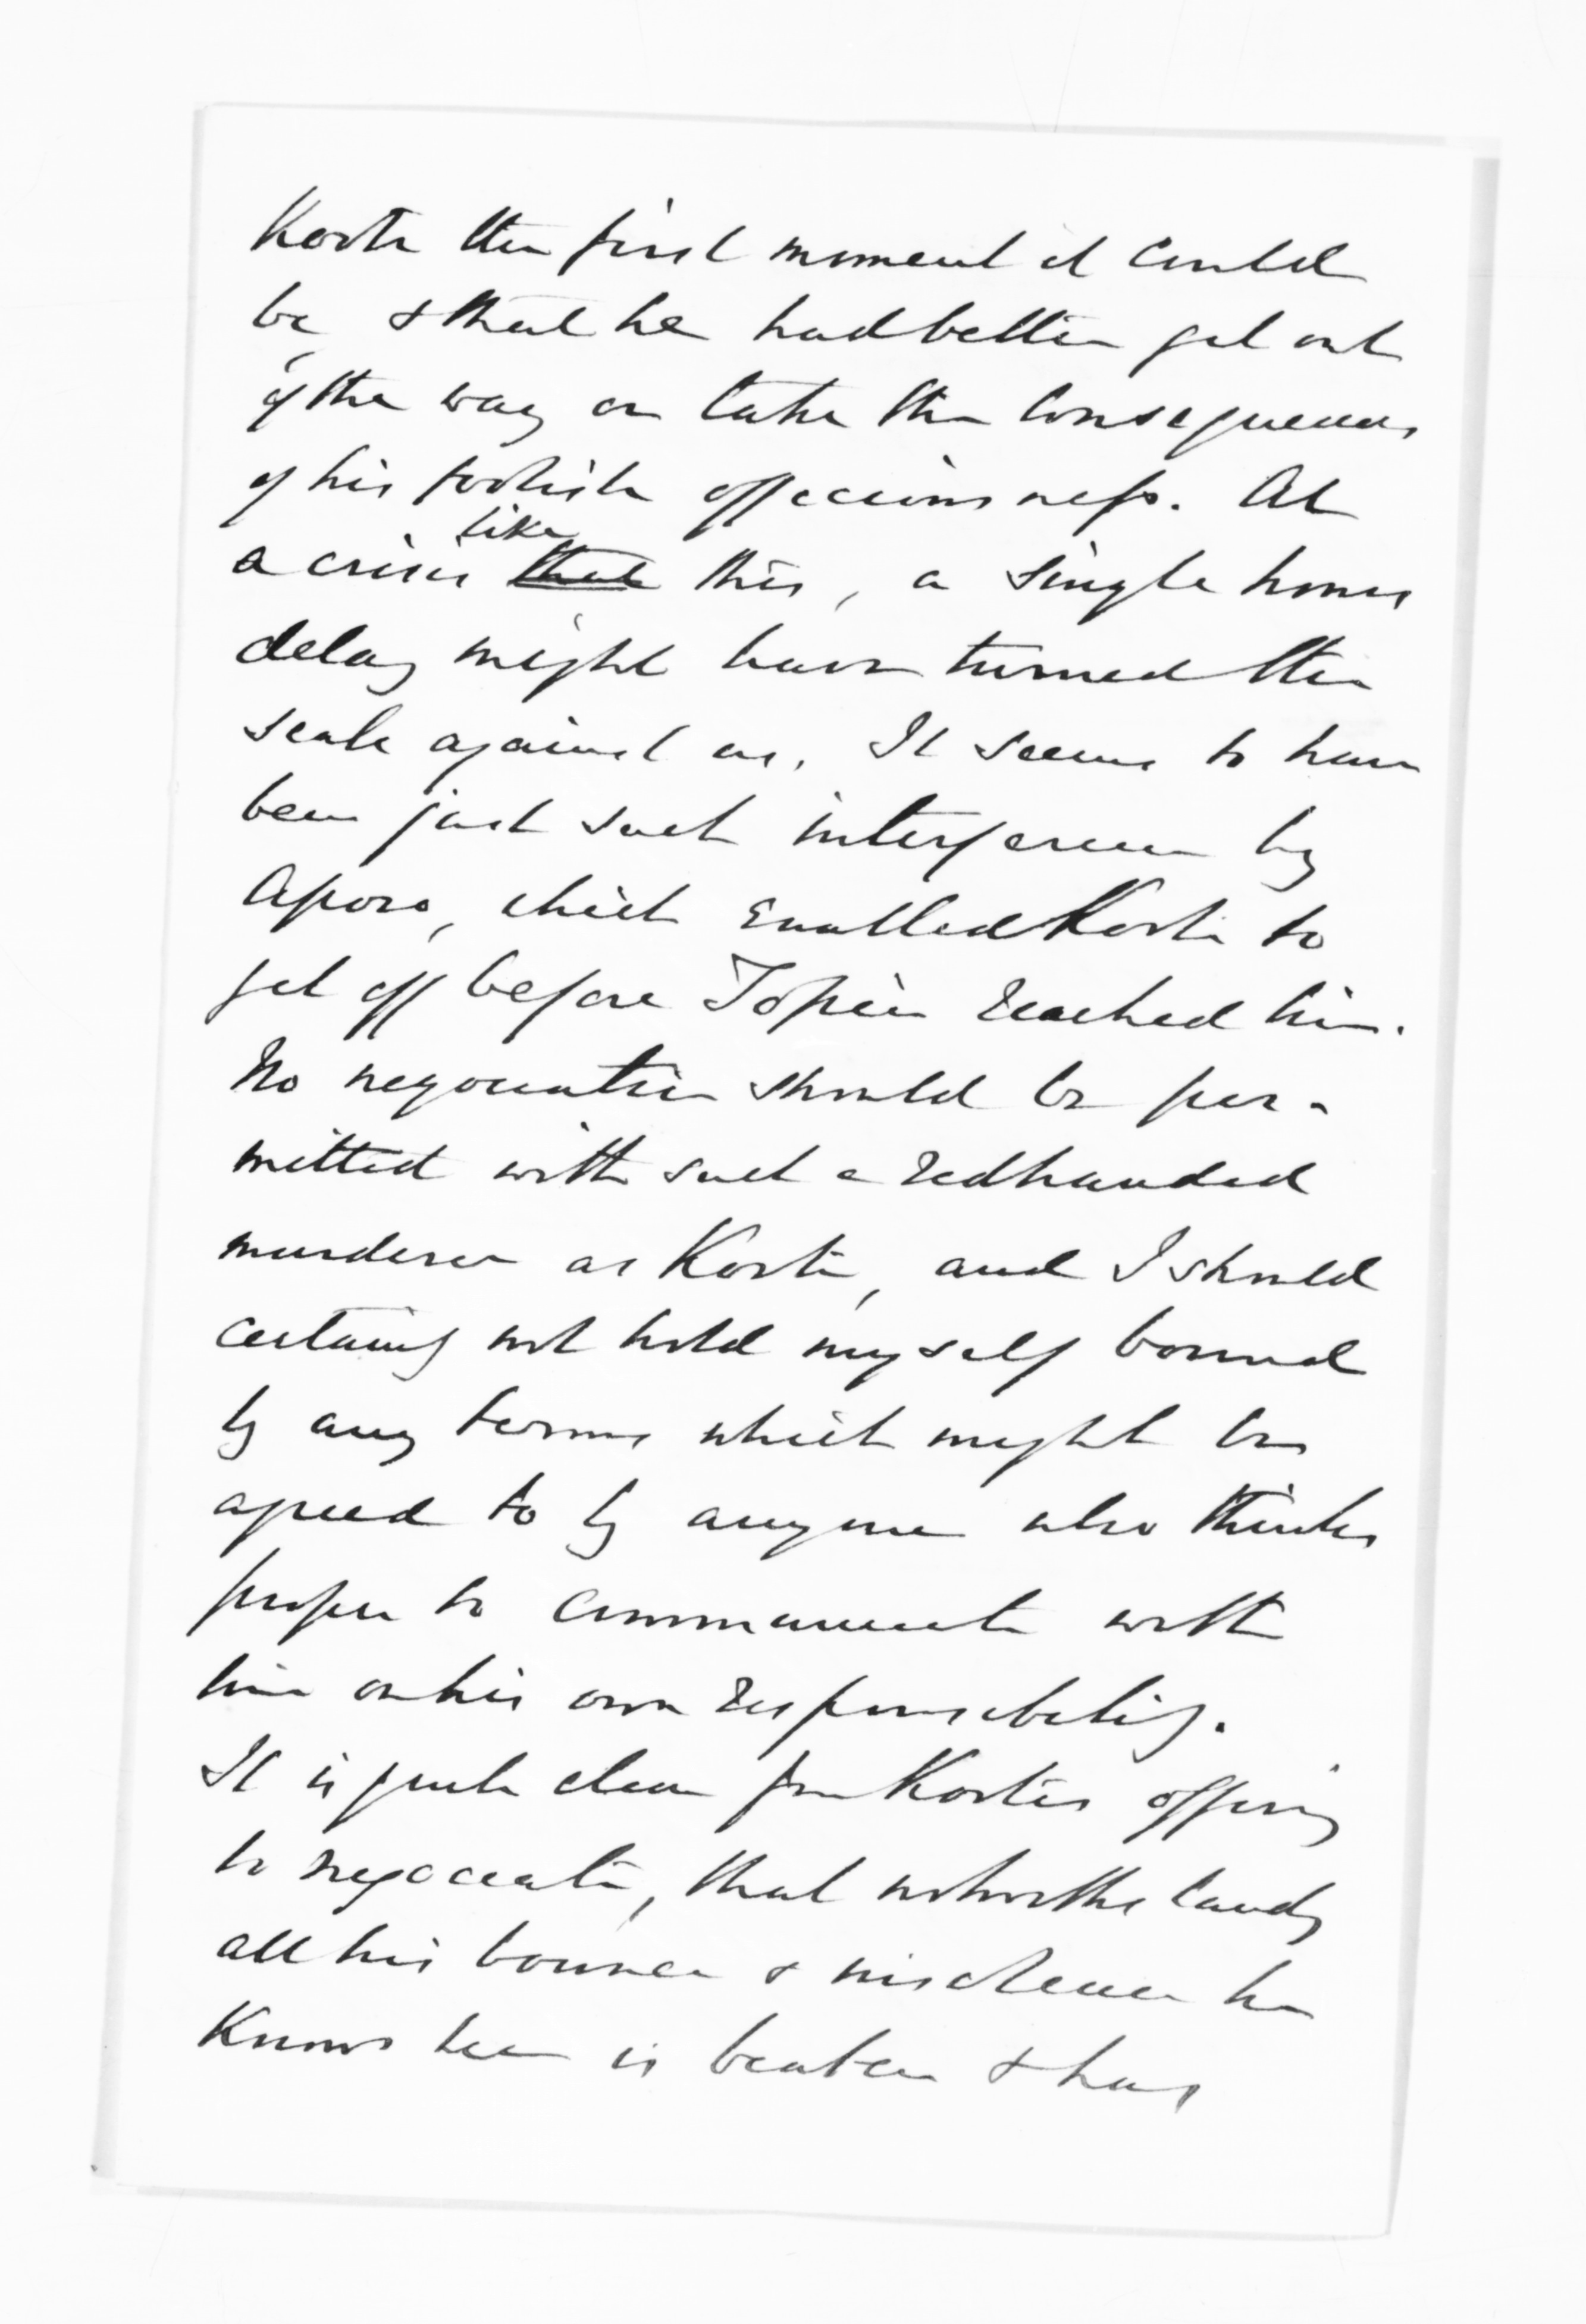 Koste the first moment it could
be, & that he had better get out
of the way or take the consequences
of his foolish officiousness. At
a crisis like that this, a single hours
delay might have turned the
scale against us. It seems to have
been just such interference by
Aporo, which enabled Kosti to
get off before Topia reached him.
No negociation should be per-
mitted with such a redhanded
murderer as Kosti, and I should
certainly not hold myself bound
by any terms which might be
agreed to by anyone who thinks
proper to communicate with
him on his own responsibility.
It is quite clear from Kostis offering
to negociate, that notwithstandg
all his bounce & insolence he
knows he is beaten & has